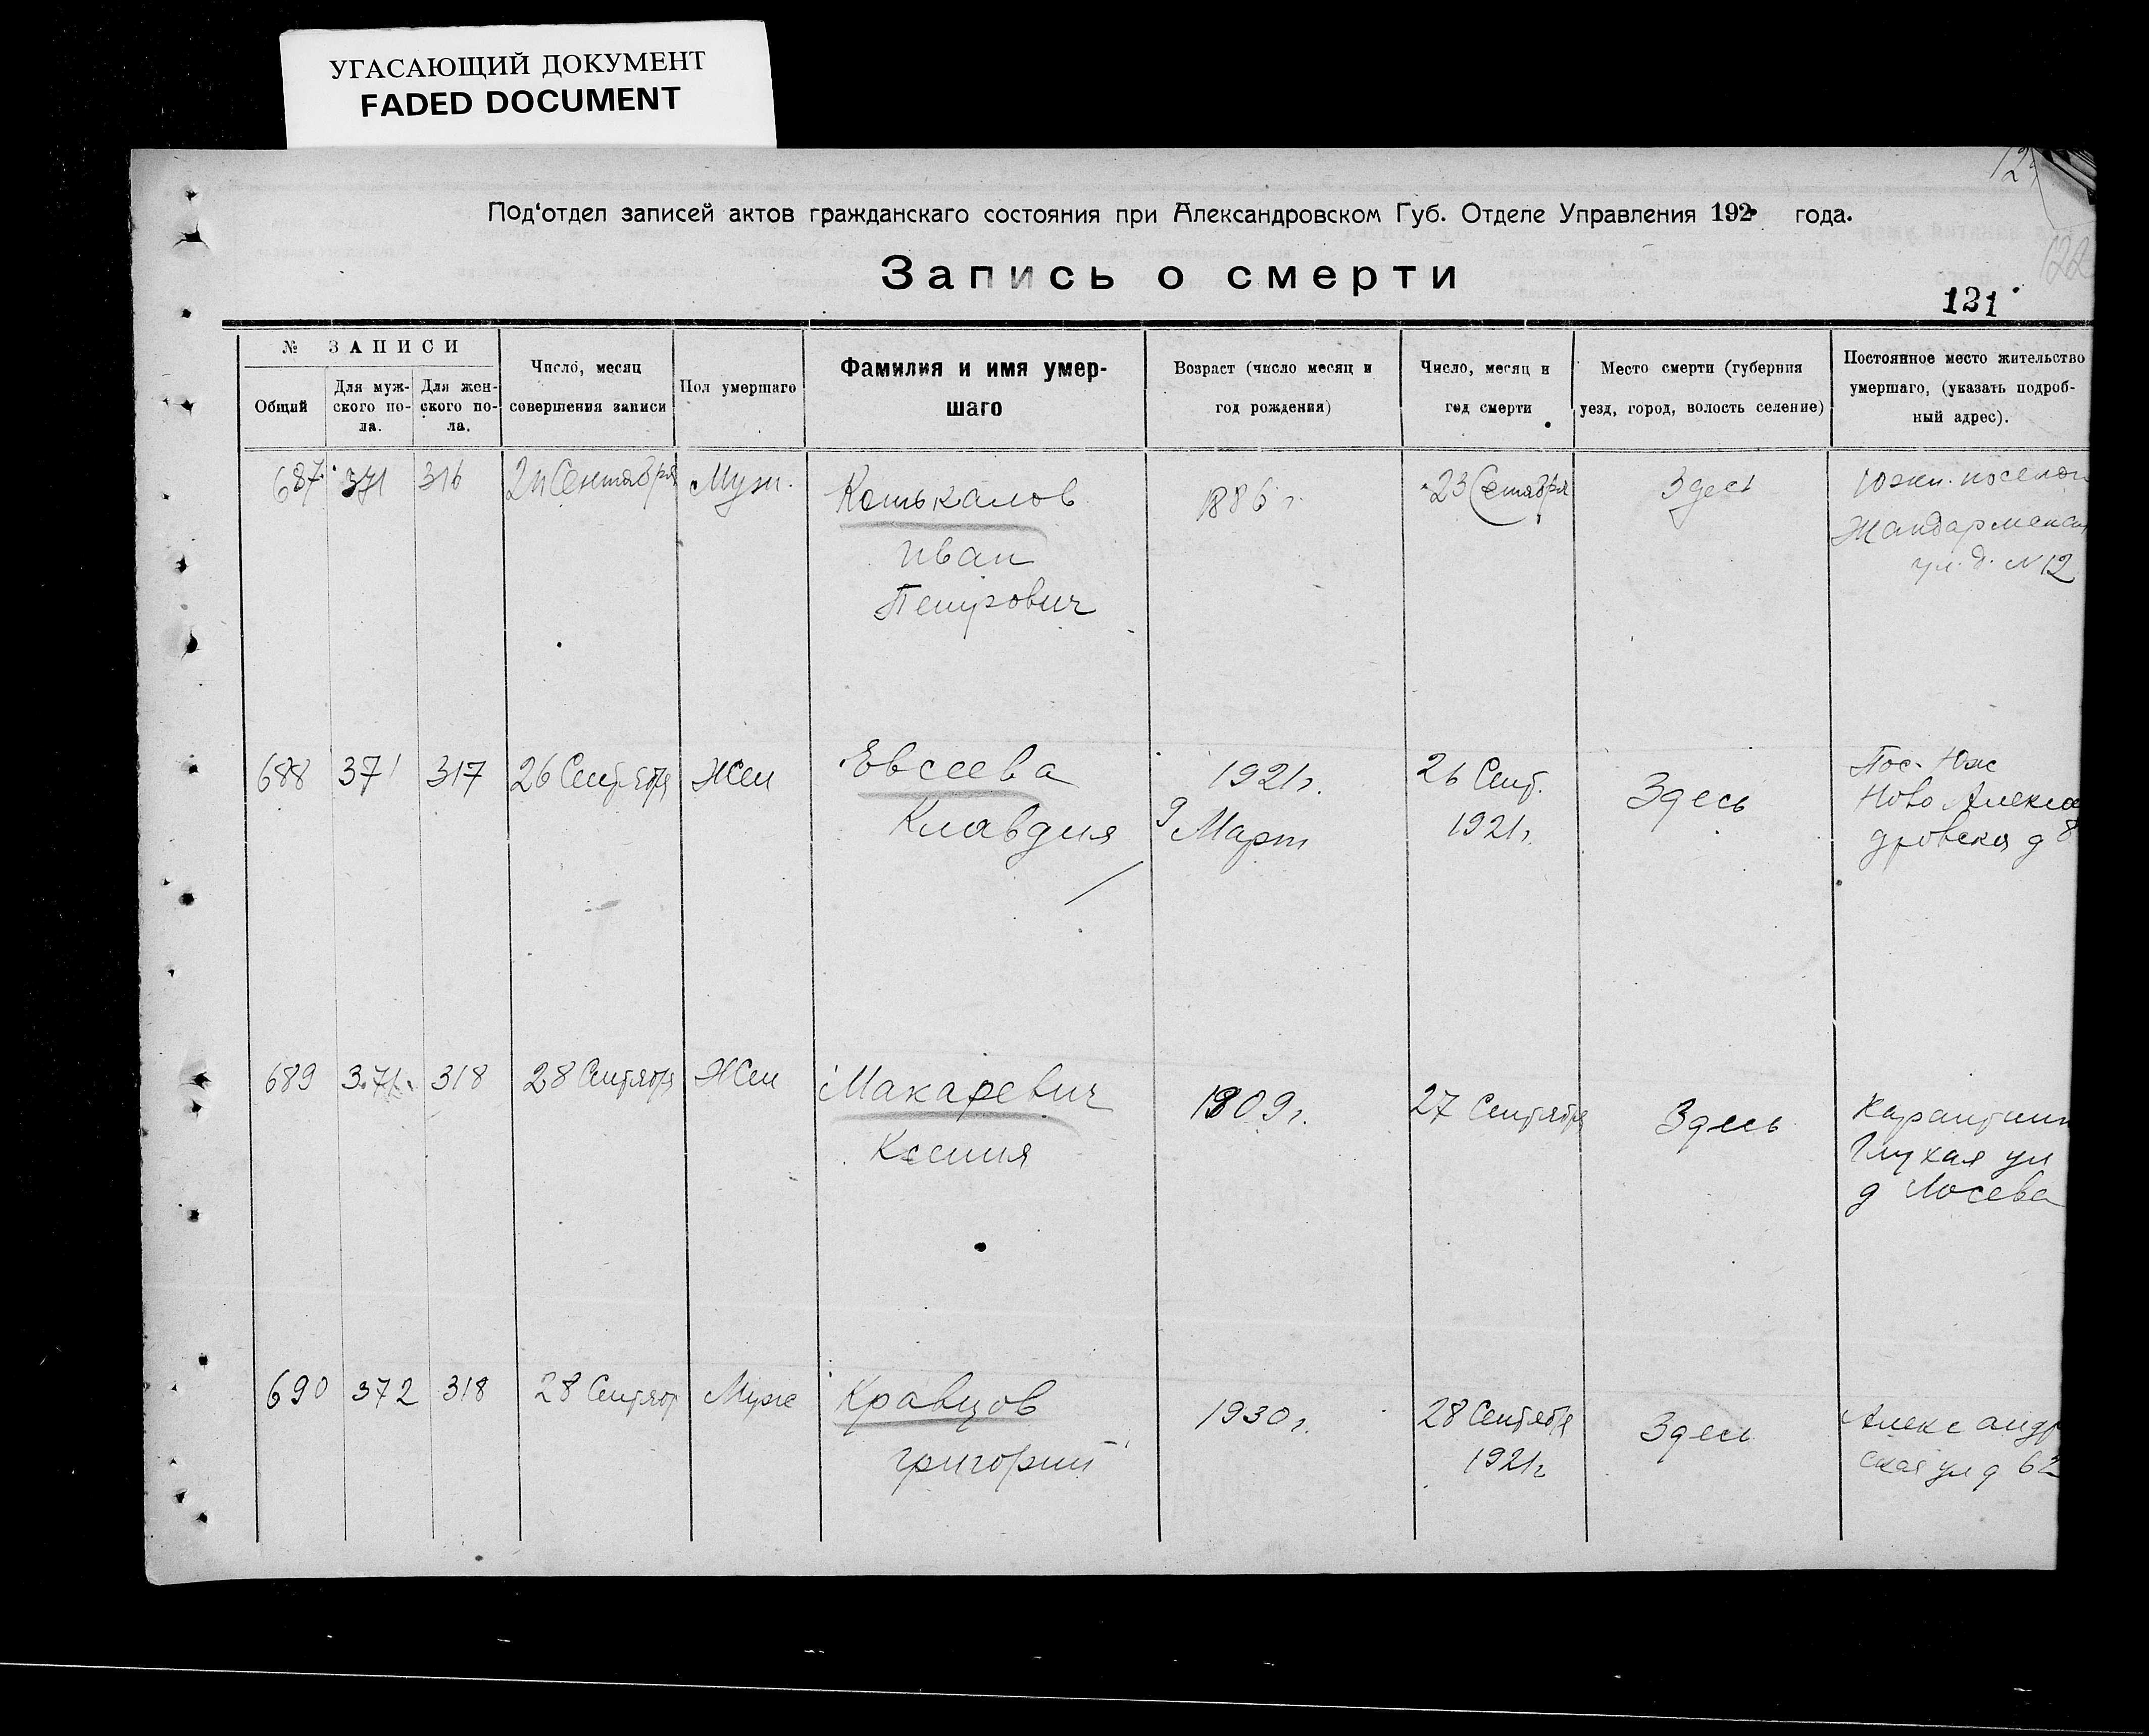 УГАСАЮЩИЙ ДОКУМЕНТ
FADED DOCUMENT
Под'отдел записей актов гражданскаго состояния при Александровском Губ. Отделе Управления 192 года.
Запись о смерти
122
121
№ ЗАПИСИ
Общий
Для муж-
ского по-
ла.
Для жен-
ского по-
ла.
Число, месяц
совершения записи
Пол умершаго
Фамилия и имя умер-
шаго
Возраст (число месяц и
год рождения)
Число, месяц и
год смерти
Место смерти (губерния
уезд, город, волость селение)
Постоянное место жительство
умершаго, (указать подроб-
ный адрес).
687 371 316 24 Сентября Муж. Котькалов 1886 г 23 Сентября Здесь Южн. поселок
Иван Жандармская
Петрович ул. д. № 12
688 371 317 26 Сентября Жен Евсеева 1921 г. 26 Сент. Здесь Пос. Юж
Клавдия 9 Март 1921 г. Ново Алексан
дровская д 8
689 371 318 28 Сентября Жен Макаревич 1909 г. 27 Сентября Здесь Карантин
Ксения Глухая ул
д Лосева
690 372 318 28 Сентяб Муж Кравцов 1930 г. 28 Сентября Здесь Александр
Григорий 1921 г ская ул д 62